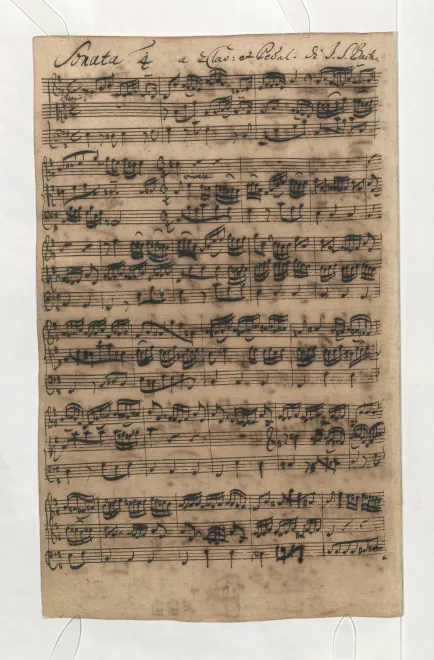 Sonata 4 a 2 Clav: et Pedal. di J. S. Bach.
vivace